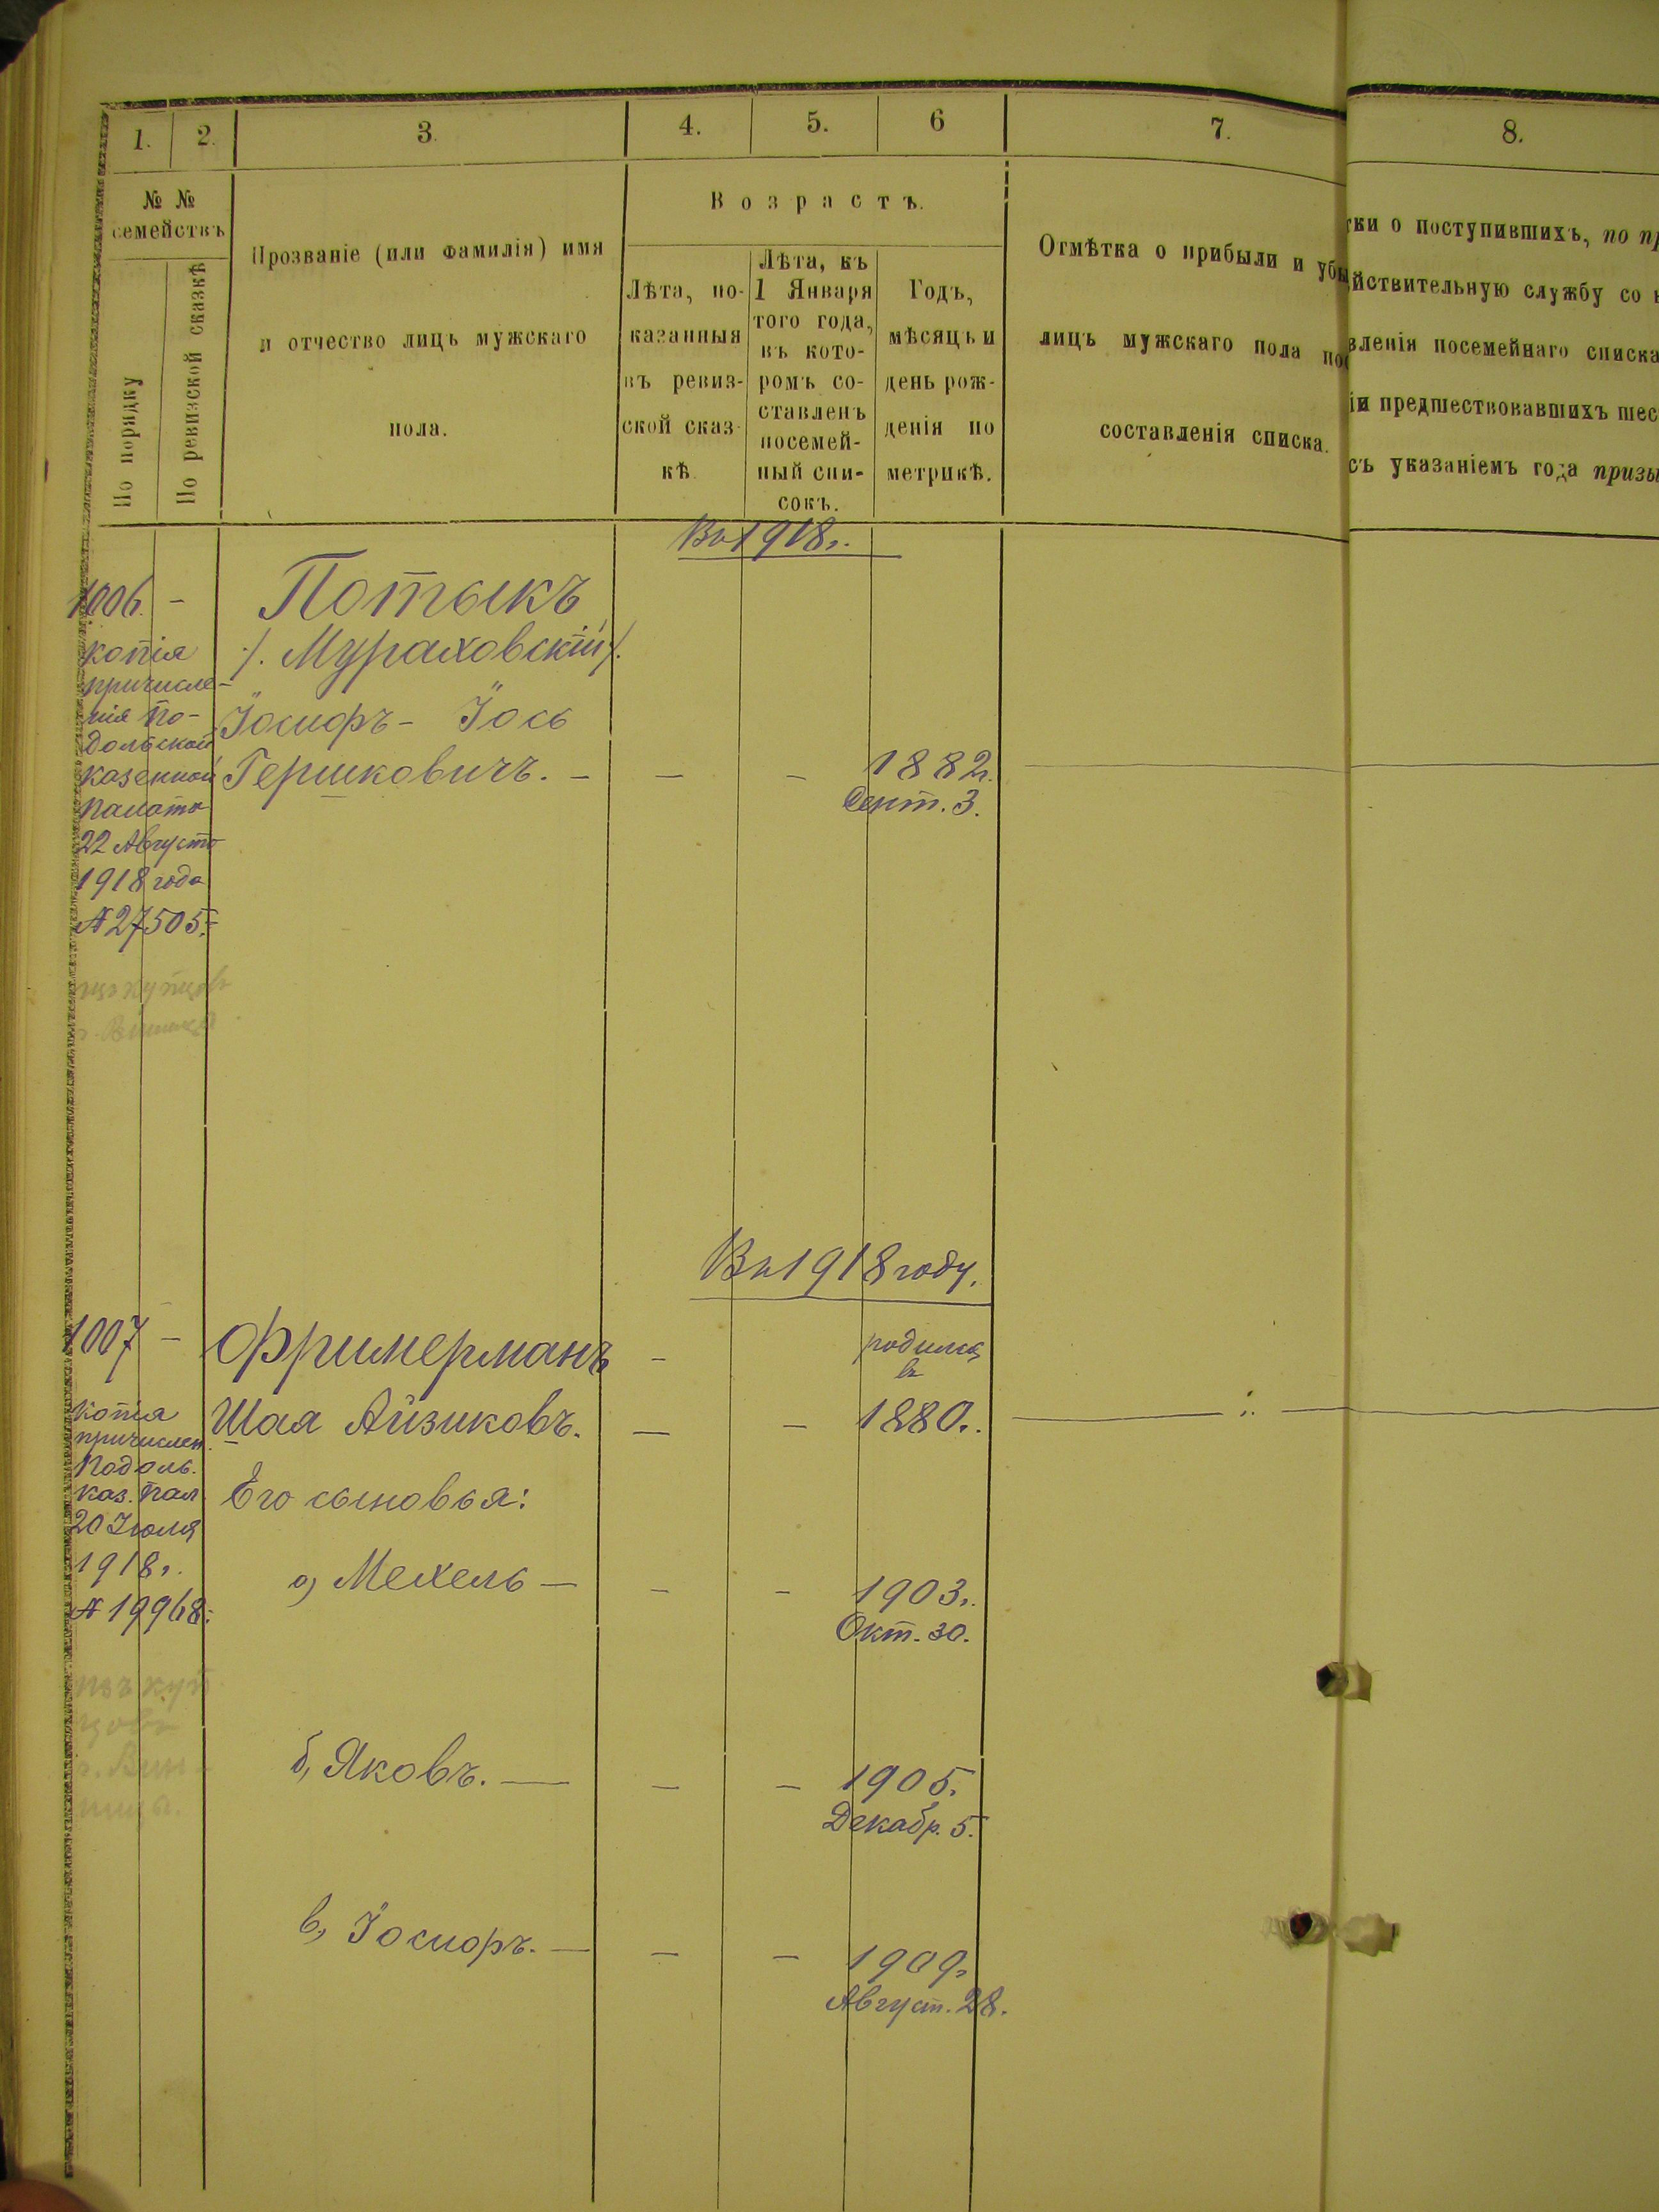 1. 2. 3. 4. 5. 6 7. 8.
№ №
семействъ
По порядку
По ревизской сказкѣ
Прозваніе (или фамилія) имя
и отчество лицъ мужскаго
пола.
Возрастъ.
Лѣта, по-
казанныя
въ ревиз-
ской сказ-
кѣ.
Лѣта, къ
1 Января
того года,
въ кото-
ромъ со-
ставленъ
посемей-
ный спи-
сокъ.
Годъ,
мѣсяцъ и
день рож-
денія по
метрикѣ.
Отмѣтка о прибыли и убы
лицъ мужскаго пола пос
составленія списка.
тки о поступившихъ, по пр
йствительную службу со
вленія посемейнаго списка
іи предшествовавшихъ шес
съ указаніемъ года призы
Въ 1918г.
1006. -
копія
причисле-
нія По-
дольской
Казенной
Палаты
22 Августа
1918 года
№ 27505.-
изъ купцовъ
г. Винницы
Потыкъ
/. Мураховскій/.
Іосифъ - Іось
Гершковичъ. - - - 1882г.
Сент. 3.
Въ 1918 году.
1007 -
копія
причислен.
Подоль.
каз. пал.
20 Іюля
1918г.
№ 19968.-
изъ куп-
цовъ
г. Вин-
ницы.
Фримерманъ - родился
въ
Шая Айзиковъ. - - 1880г.
Его сыновья:
а) Мехель - - - 1903г.
Окт. 30.
б, Яковъ. - - - 1905.
Декабр. 5.
в, Іосифъ. - - - 1909г
Август. 28.